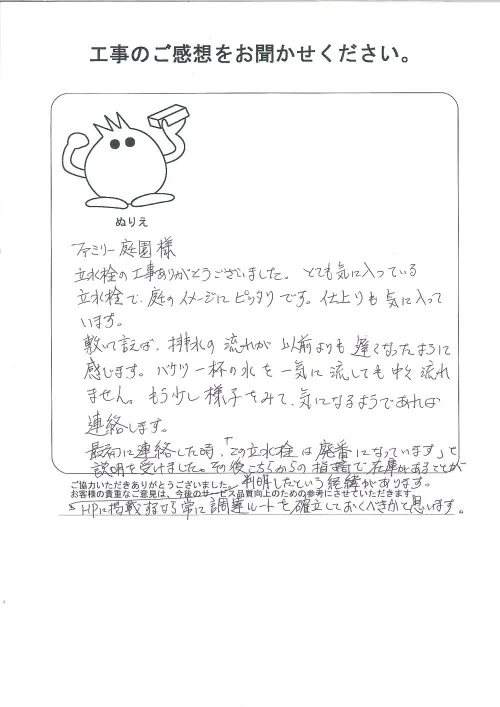 工事のご感想をお聞かせください。
ぬりえ
ファミリー庭園様
立水栓の工事ありがとうございました。とても気に入っている
立水栓で、庭のイメージにピッタリです。仕上りも気に入って
います。
敷いて言えば、排水の流れが以前よりも遅くなったように
感じます。バケツ一杯の水を一気に流しても中々流れ
ません。もう少し様子をみて、気になるようであれば
連絡します。
最初に連絡した時、「この立水栓は廃番になっています」と
説明を受けました。その後こちらからの指摘で在庫があることが
ご協力いただきありがとうございました。
判明したという経緯があります。
お客様の貴重なご意見は、今後のサービス品質向上のための参考にさせていただきます
HPに掲載するなら常に調達ルートを確立しておくべきかと思います。